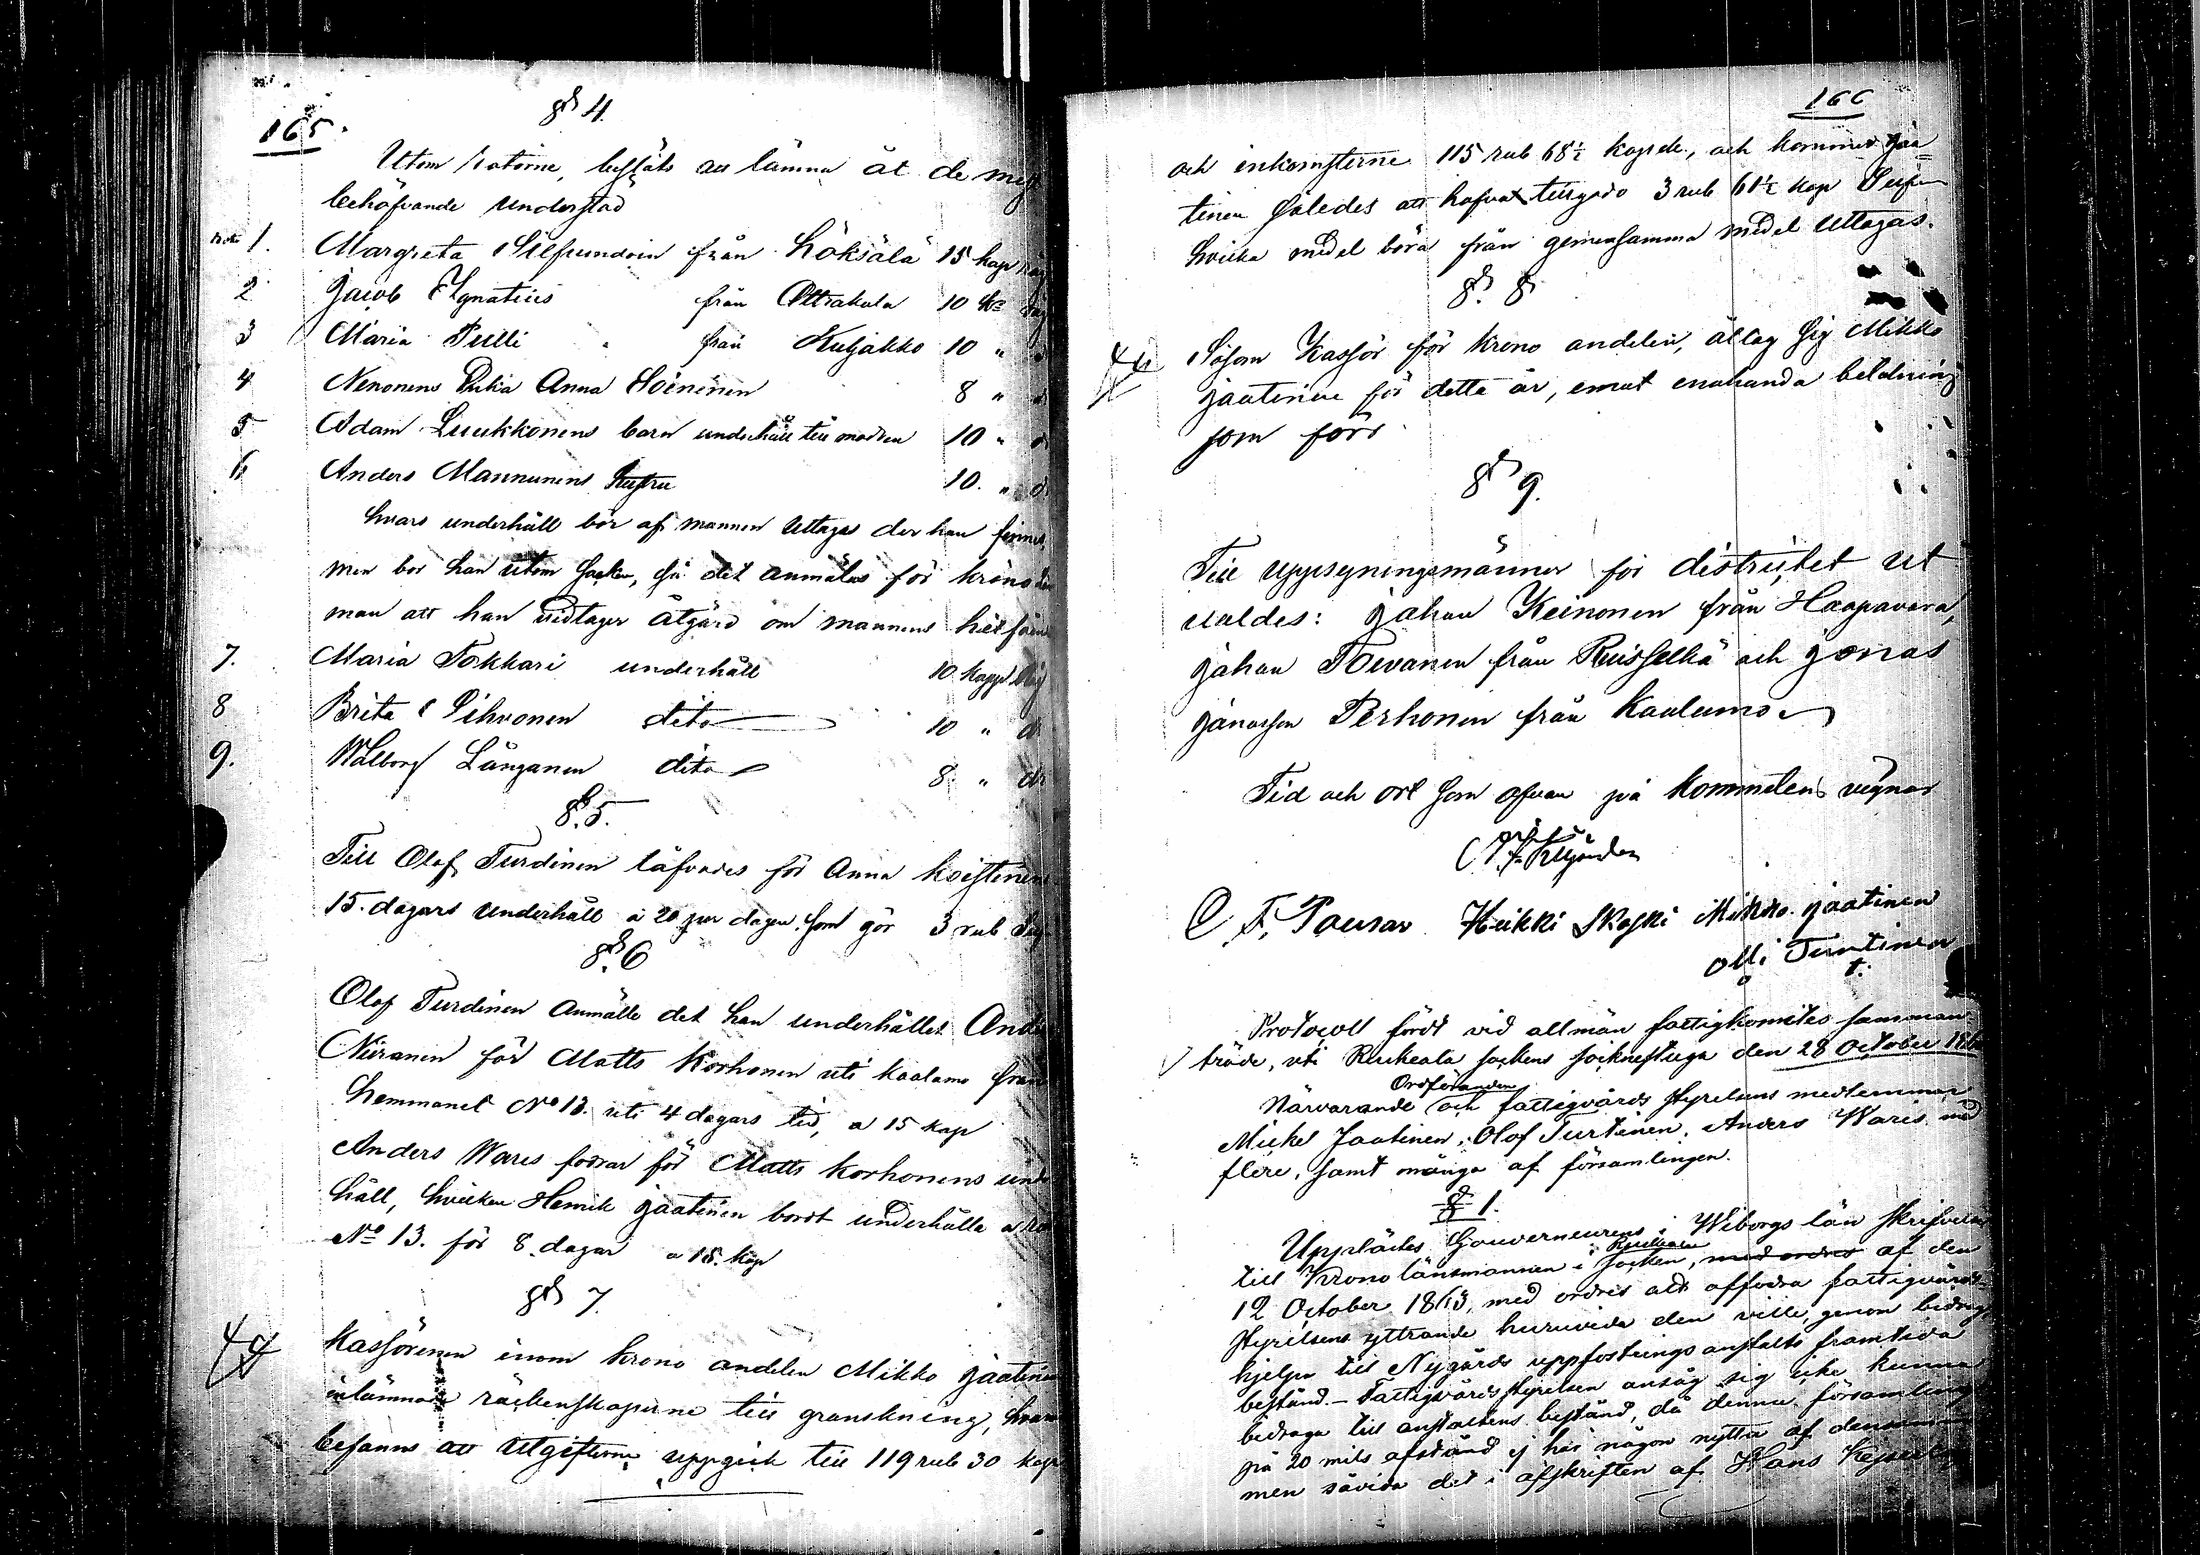 165.
§ 4.
Utom rotorne, beslöts att lämna åt de mest
behöfvande understöd
1. Margreta Silfvundoin från Löksälä 15 kap råg
2 Jacob Ignatius från Ottrakala 10 råg
3 Maria Pulli från Kuljakko 10 "
4 Nenonens Enkia Anna Soininen 8 "
5 Adam Luukkonens barn underhåll till modren 10 "
6 Anders Mannunens hustru 10. "
hvars underhåll bör af mannen uttagas der han finnes,
men bor han utom socken, så det anmälas för kronolän
man att han vidtager åtgärd om mannens hitför
7. Maria Tokkari underhåll 10 kapp råg
8 Brita Pihvonen dito 10 " do
9. Walborg Långanen dito 8 " do
§. 5.
Till Olof Turdinen läfvades för Anna Koistinens
15. dagars underhåll a 20 per dagen. som gör 3 rub Silf
§. 6
Olof Turdinen Anmälte det han underhållet Anders
Niiranen för Matts Korhonen uti Kaalamo från
hemmanet No 13. uti 4 dagars tid, a 15 kap
Anders Wares fodrar för Matts Korhonens under
håll, hvilken Henrik Jaatinen bordt underhålla a
No 13. för 8. dagar a 15. kop
§ 7
Kassörenen inom krono andelen Mikko Jaatinen
inlämnade räckenskaperne till granskning, hvar
befanns att utgifterne uppgick till 119 rub 30 kop
166
och inkomsterne 115 rub 68½ kop, och kommer Jaa=
tinen således att hafva tillgodo 3 rub 61½ kop Silfver
hvilka medel böra från gemensamma medel uttagas.
§. 8
Såsom Kassör för krono andelen, åttog sig Mikko
Jaatinen för detta år, emot enahanda belöning
som förr
§ 9.
Till uppsyningsmänner för districtet ut
valdes: Johan Keinonen från Haapavara,
Johan Toivanen från Ruisselkä och Jonas
Jonasson Perhonen från Kaalamo
Tid och ort som ofvan på kommitens vegnar
C. F. Pousar Heikki Skoski Mikko Jaatinen
Olli Turtinen
Protocoll fördt vid allmän fattigkomites samman=
träde, uti Ruskeala sockens sockenstuga den 28 October
Ordföranden
Närvarande och fattigvårds styrelsens medlemmar
Mickel Jaatinen, Olof Turtinen, Anders Waris med
flere, samt många af församlingen.
§ 1.
Upplästes Gouverneurens i Wiborgs län skrifvelse
till Kronolänsmannen i Ruskeala socken, med ordres af den
12 October 1863, med ordres att affodra fattigvårds=
styrelsens yttrande huruvida den ville genom bidrag
hjelpa till Nygårds uppfostrings anstalts framtida
bestånd. – Fattigvårdsstyrelsen ansåg sig icke kunna
bidraga till anstaltens bestånd, då denna församling
på 20 mils afstånd ej har någon nytta af densamma
men såvida det i afskriften af Hans Kejserliga